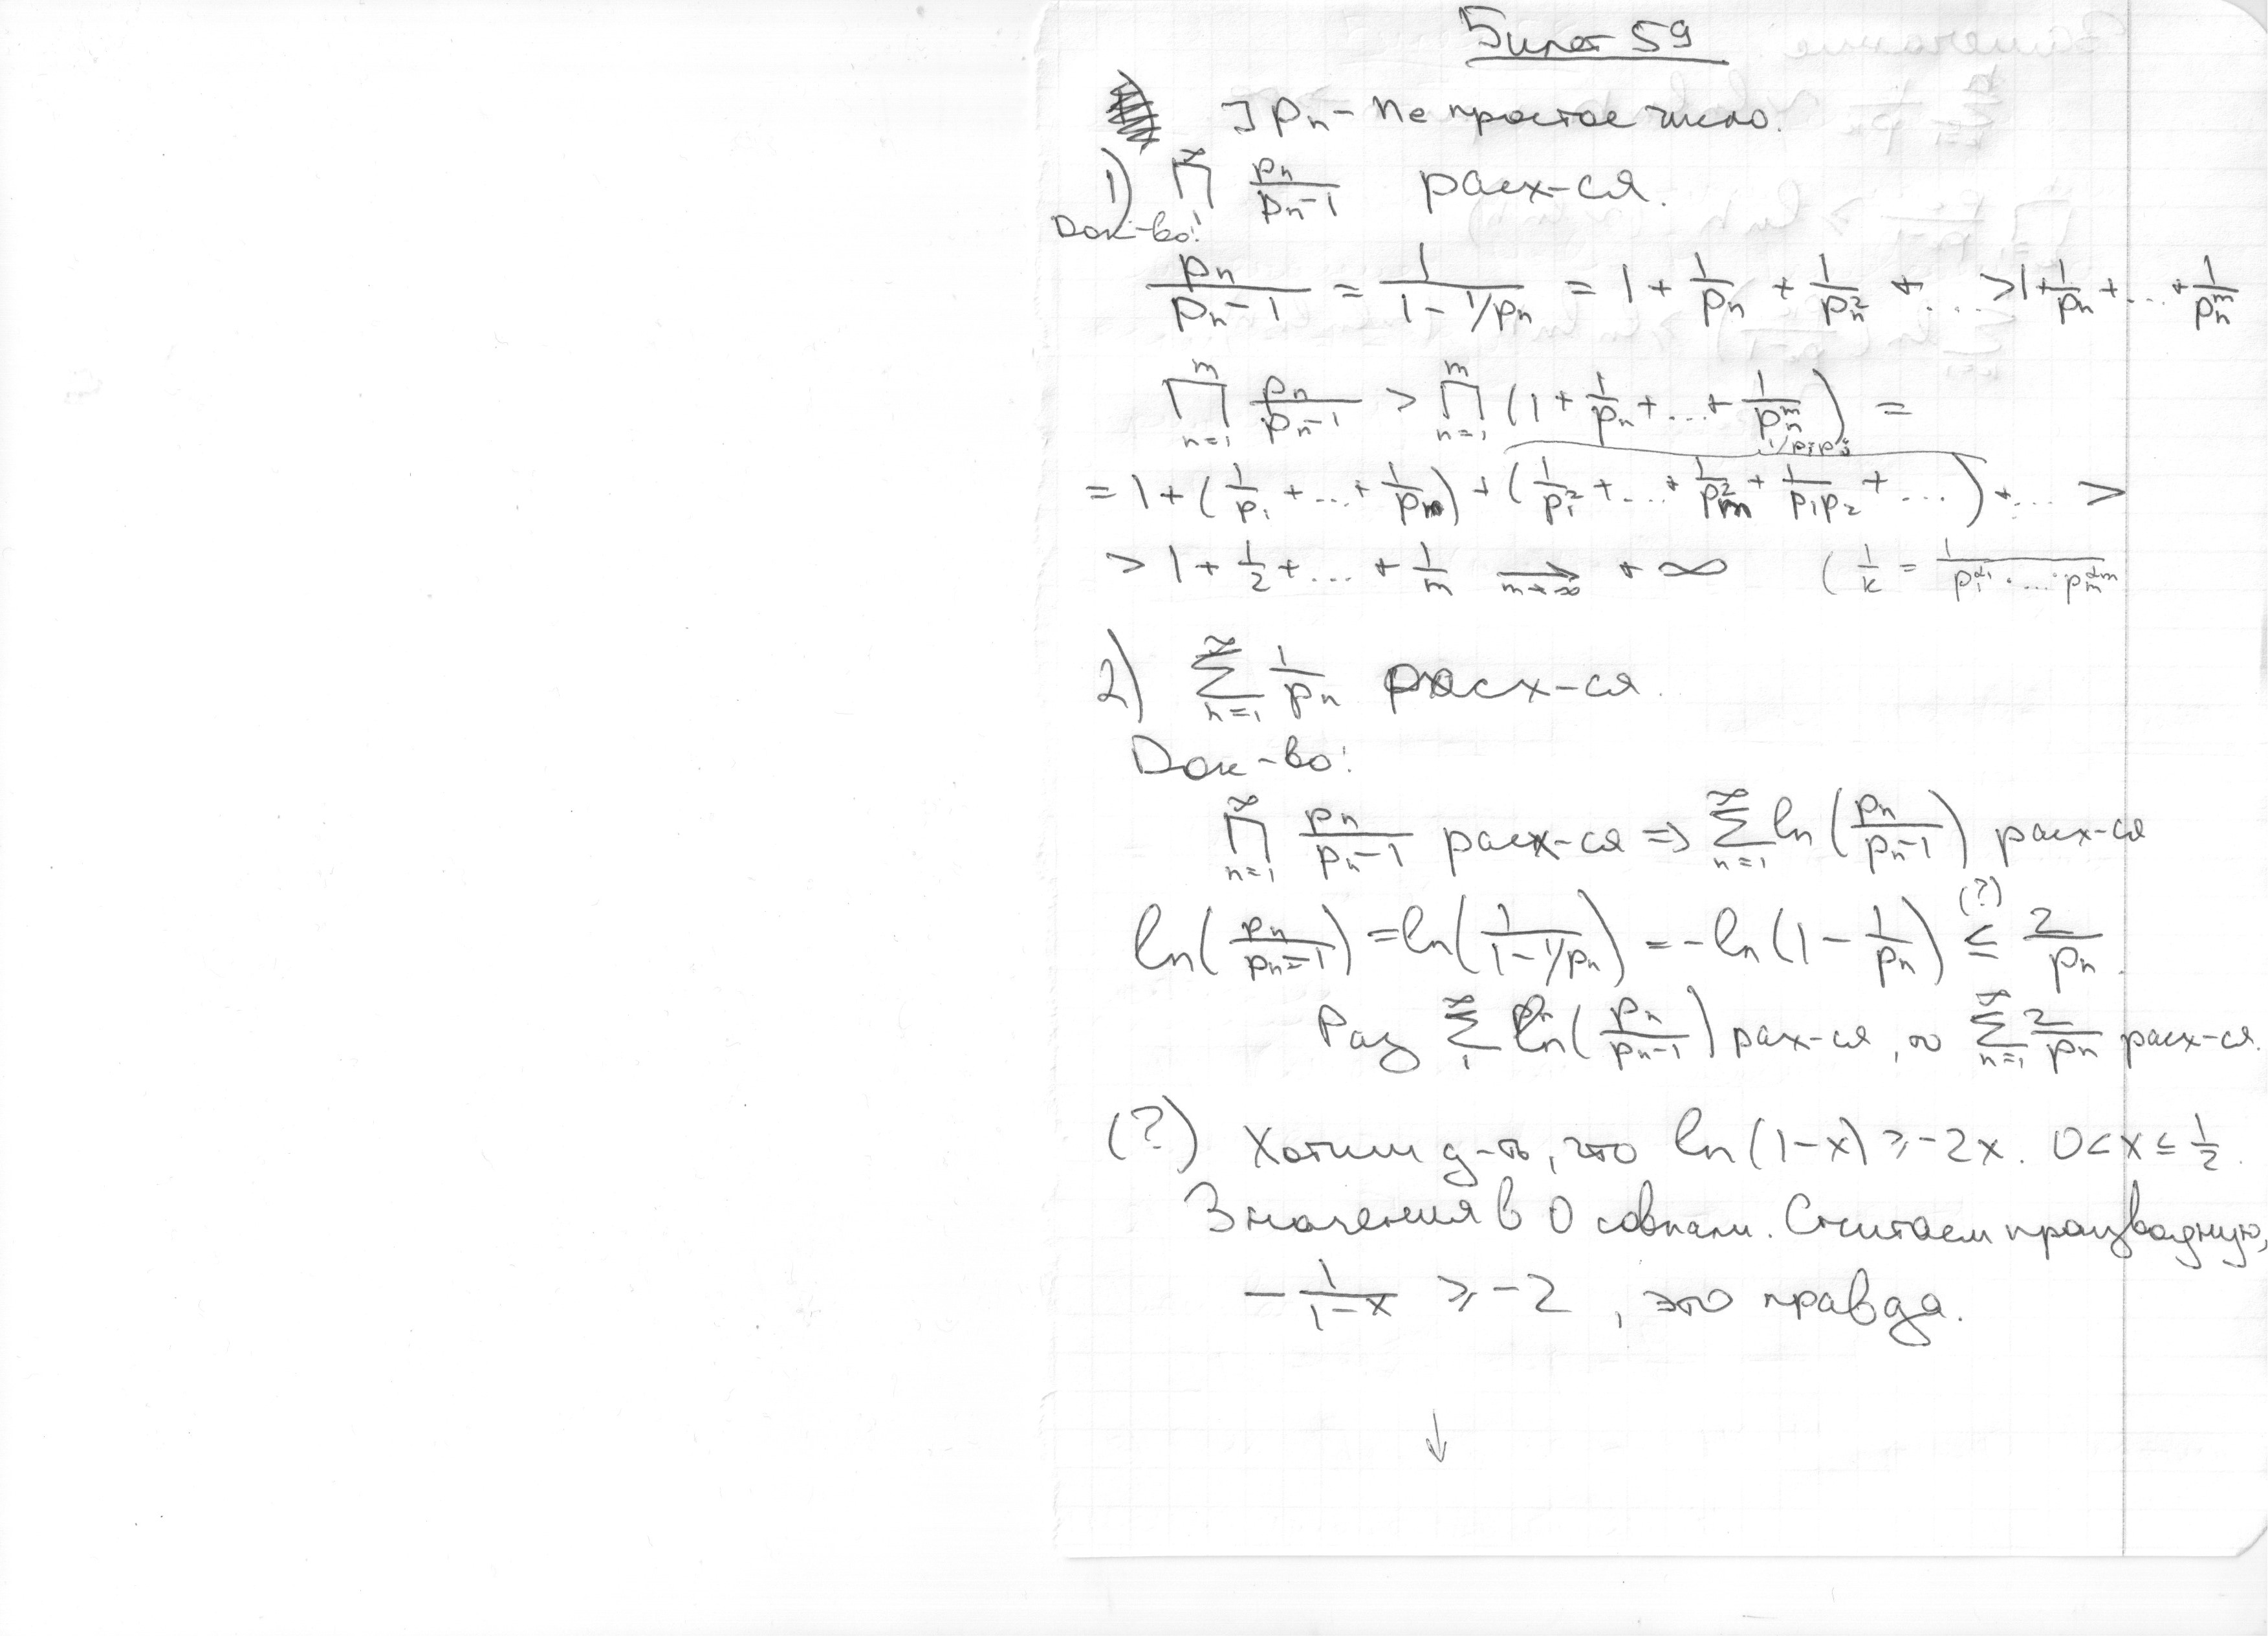 Билет 59
] pₙ – n-е простое число.
1) ∏_{1}^{∞} pₙ/(pₙ-1) расх-ся.
Док-во:
pₙ/(pₙ-1) = 1/(1 - 1/pₙ) = 1 + 1/pₙ + 1/pₙ² + ... > 1 + 1/pₙ + ... + 1/pₙᵐ
∏_{n=1}^{m} pₙ/(pₙ-1) > ∏_{n=1}^{m} (1 + 1/pₙ + ... + 1/pₙᵐ) =
1/pᵢpⱼ
= 1 + (1/p₁ + ... + 1/pₘ) + (1/p₁² + ... + 1/pₘ² + 1/p₁p₂ + ...) + ... >
> 1 + 1/2 + ... + 1/m →_{m→∞} +∞ ( 1/k = 1/(p₁^{α₁} · ... · pₘ^{αₘ})
2) ∑_{n=1}^{∞} 1/pₙ расх-ся.
Док-во:
∏_{n=1}^{∞} pₙ/(pₙ-1) расх-ся => ∑_{n=1}^{∞} ln(pₙ/(pₙ-1)) расх-ся
ln(pₙ/(pₙ-1)) = ln(1/(1 - 1/pₙ)) = -ln(1 - 1/pₙ) ≤^{(?)} 2/pₙ.
Раз ∑_{1}^{∞} ln(pₙ/(pₙ-1)) рах-ся, то ∑_{n=1}^{∞} 2/pₙ расх-ся.
(?) Хотим д-ть, что ln(1-x) ≥ -2x. 0 < x ≤ 1/2.
Значения в 0 совпали. Считаем производную,
- 1/(1-x) ≥ -2, это правда.
↓